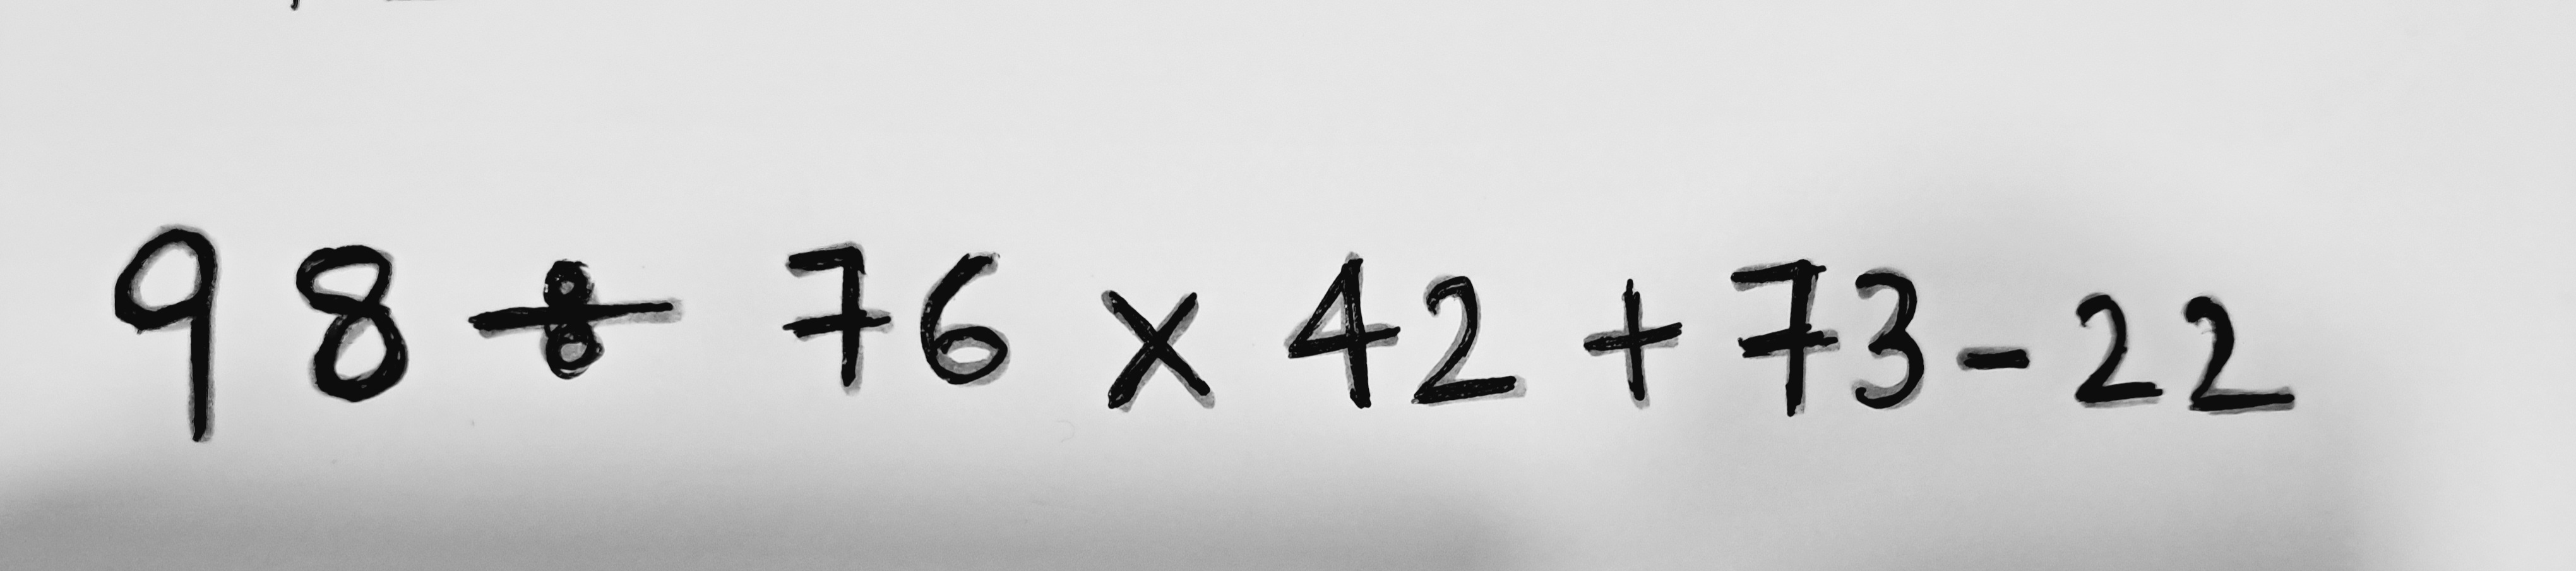 98 ÷ 76 × 42 + 73 - 22